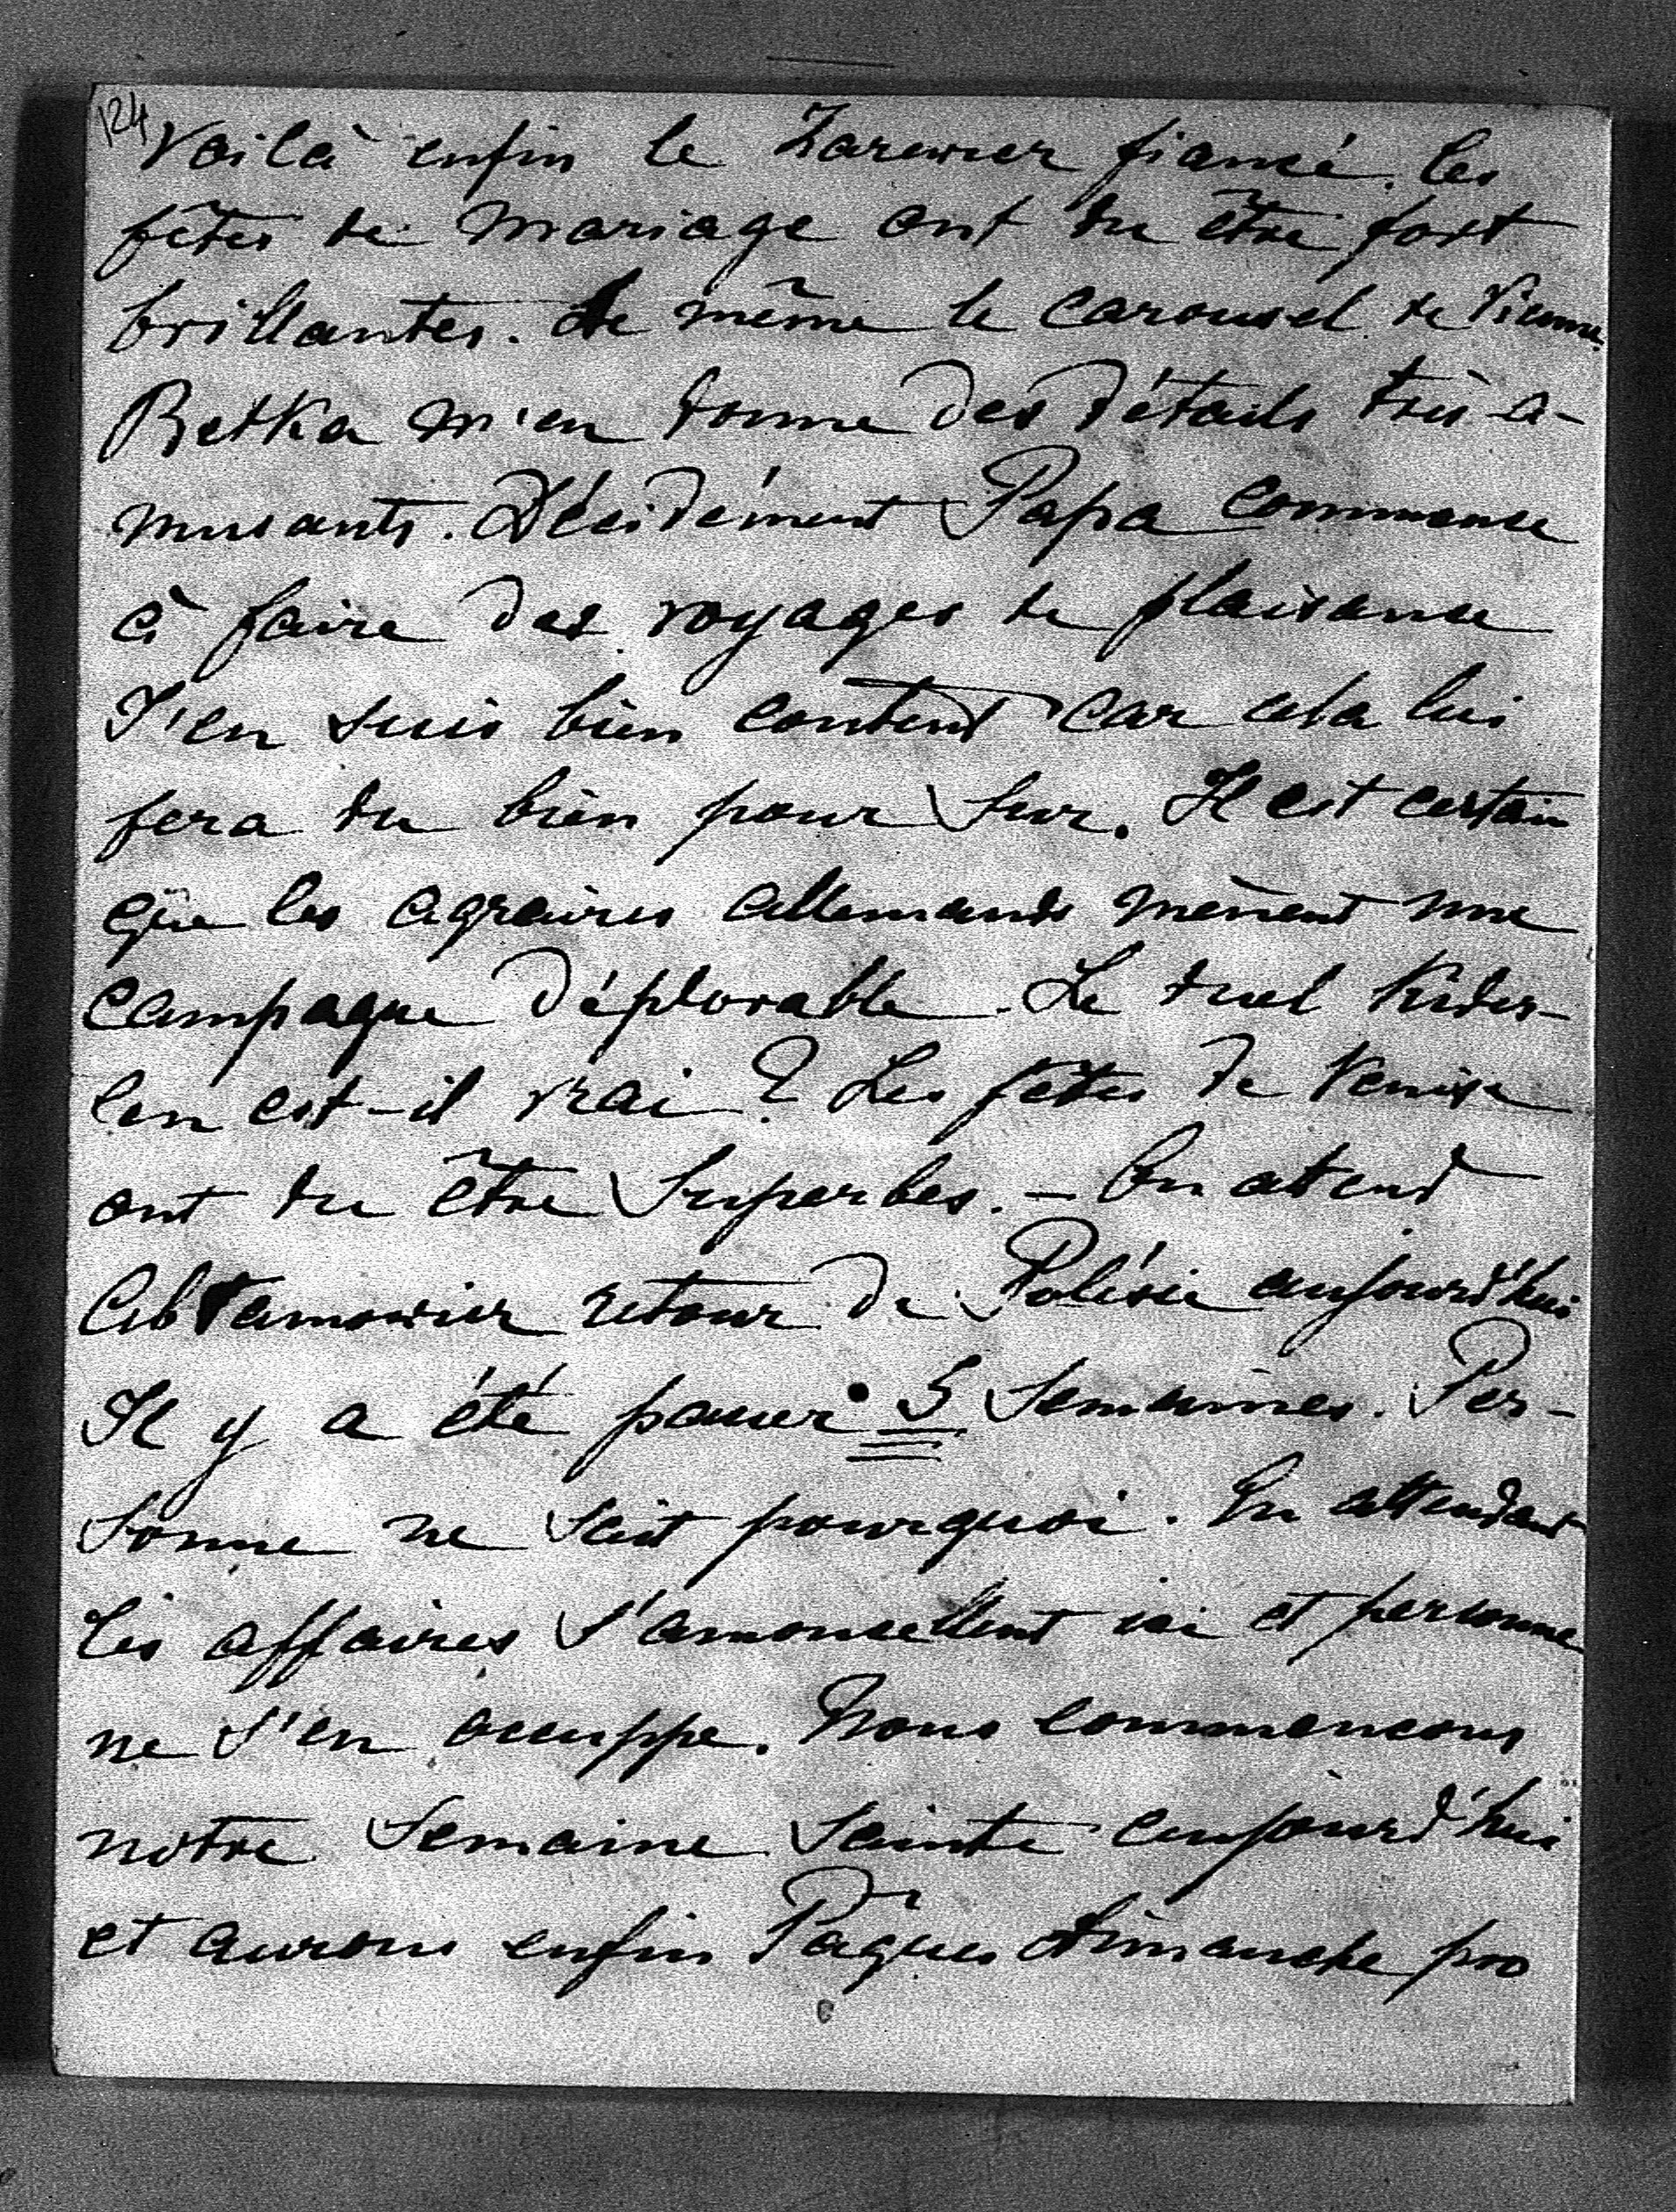 124
Voilà enfin le Zarewier fiancé. les
fêtes de mariage ont du être fort
brillantes. De même le Carousel de Vienne.
Betka m'en donne des détails très a-
musants. Décidément Papa commence
à faire des voyages de plaisance
J'en suis bien content car cela lui
fera du bien pour sur. Il est certain
que les agraires allemands mènent une
campagne déplorable. Le duel Kider-
len est-il vrai? Les fêtes de Venise
ont du être superbes. - On attend
retour de Polésie aujourd'hui
Il y a été passer 5 semaines. Per-
sonne ne sait pourquoi. En attendant
les affaires s'amoncellent ici et personne
ne s'en occuppe. Nous commencons
notre semaine sainte aujourd'hui
et aurons enfin Pâques dimanche pro